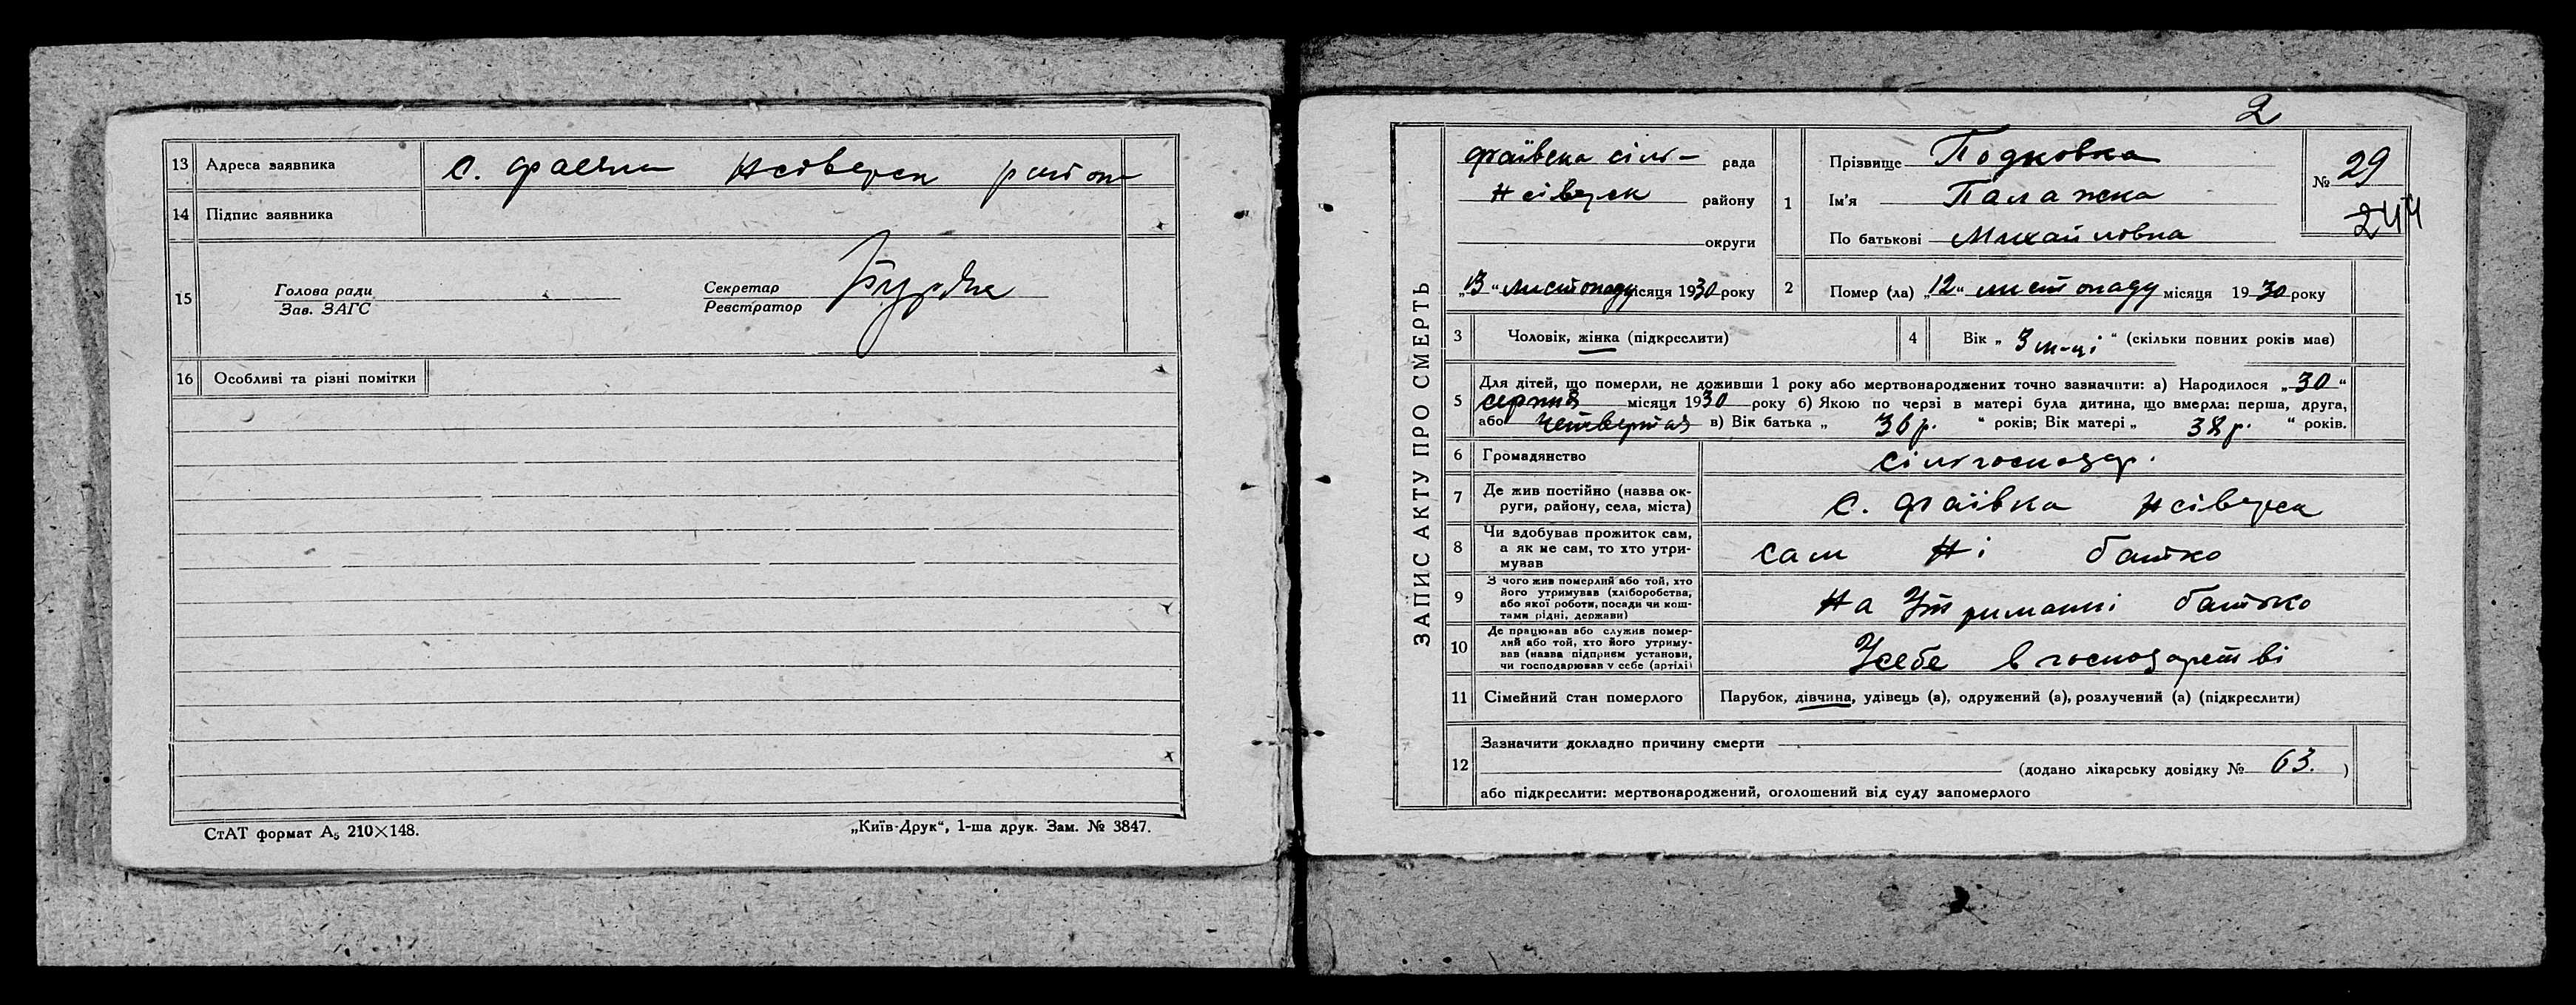 13 Адреса заявника с. Фаєвка Нсіверск район
14 Підпис заявника
15 Голова ради
Зав. ЗАГС
Секретар
Реєстратор
16 Особливі та різні помітки
СтАТ формат А₅ 210×148.
„Київ-Друк“, 1-ша друк. Зам. № 3847.
2
ЗАПИС АКТУ ПРО СМЕРТЬ
Фаївска сіль- рада
Нсіверск району
округи
„13“ листопаду місяця 1930 року
1 Прізвище Подковка
Ім'я Палажка
По батькові Михайловна
№ 29
244
2 Помер (ла) „12“ листопаду місяця 1930 року
3 Чоловік, жінка (підкреслити)
4 Вік „ 3 м-ці “ (скільки повних років має)
5 Для дітей, що померли, не доживши 1 року або мертвонароджених точно зазначити: а) Народилося „30“
серпня місяця 1930 року б) Якою по черзі в матері була дитина, що вмерла: перша, друга,
або четвертая в) Вік батька „ 36 р. “ років; Вік матері „ 38 р. “ років.
6 Громадянство сільгосподар.
7 Де жив постійно (назва ок-
руги, району, села, міста) с. Фаівка Нсіверск
8 Чи здобував прожиток сам,
а як не сам, то хто утри-
мував сам Ні батко
9 З чого жив померлий або той, хто
його утримував (хліборобства,
або якої роботи, посади чи кош-
тами рідні, держави) На Утриманні батько
10 Де працював або служив помер-
лий або той, хто його утриму-
вав (назва підприєм установи,
чи господарював у себе (артілі) Усебе в господарстві
11 Сімейний стан померлого Парубок, дівчина, удівець (а), одружений (а), розлучений (а) (підкреслити)
12 Зазначити докладно причину смерти
(додано лікарську довідку № 63. )
або підкреслити: мертвонароджений, оголошений від суду запомерлого